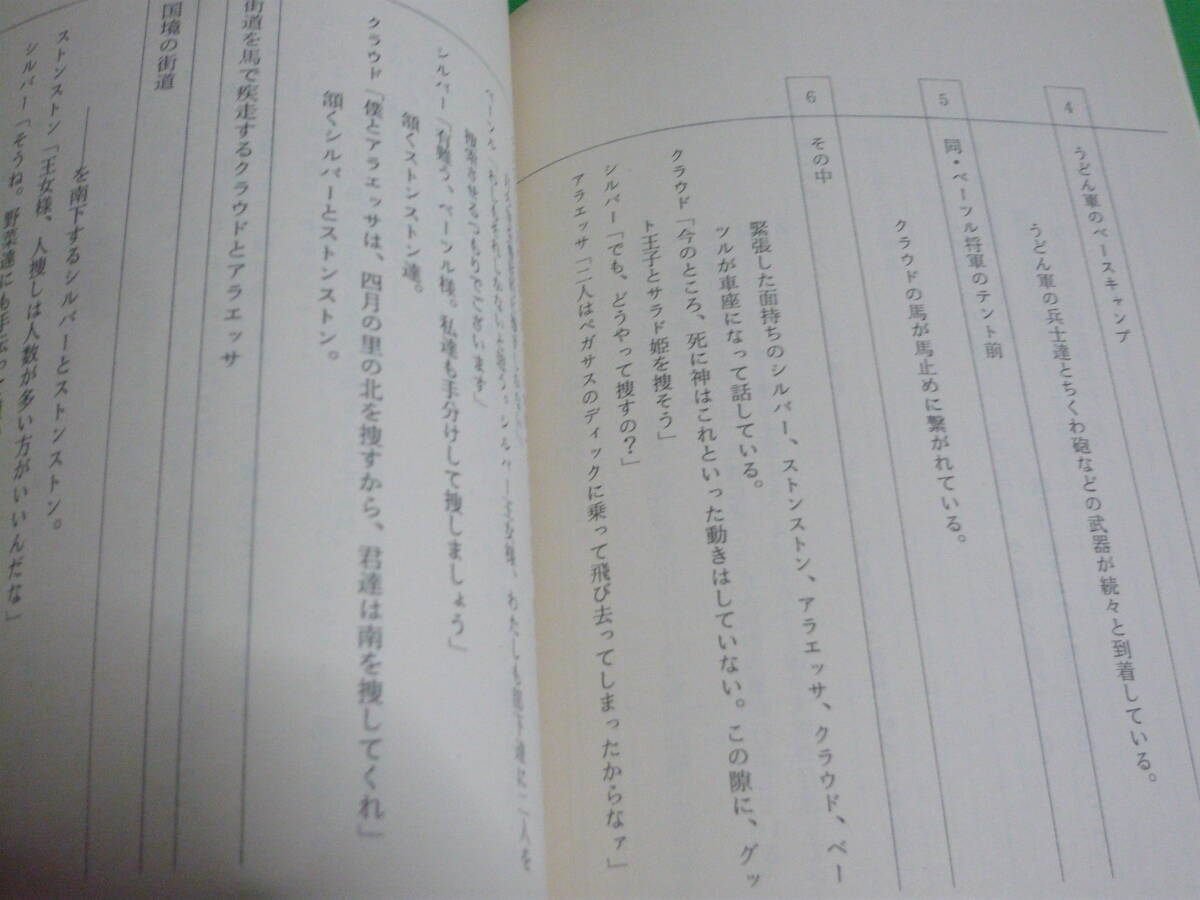 4
うどん軍のベースキャンプ
うどん軍の兵士達とちくわ砲などの武器が続々と到着している。
5
同・ベーツル将軍のテント前
クラウドの馬が馬止めに繋がれている。
6
その中
緊張した面持ちのシルバー、ストンストン、アラエッサ、クラウド、ベー
ツルが車座になって話している。
クラウド「今のところ、死に神はこれといった動きはしていない。この隙に、グッ
ト王子とサラド姫を捜そう」
シルバー「でも、どうやって捜すの？」
アラエッサ「二人はペガサスのディックに乗って飛び去ってしまったからなァ」
王女様、わたしも部下達に二人を
捜索させるつもりでございます」
シルバー「有難う、ベーツル様。私達も手分けして捜しましょう」
頷くストンストン達。
クラウド「僕とアラエッサは、四月の里の北を捜すから、君達は南を捜してくれ」
頷くシルバーとストンストン。
街道を馬で疾走するクラウドとアラエッサ
国境の街道
を南下するシルバーとストンストン。
ストンストン「王女様、人捜しは人数が多い方がいいんだな」
シルバー「そうね。野菜達にも手伝って